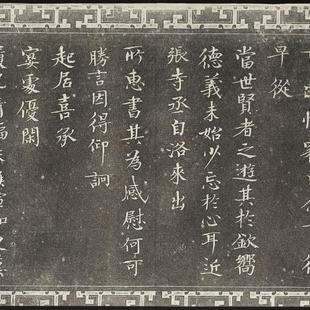 早從
當世賢者之遊其於欽嚮
德義未始少忘於心耳近
張寺丞自洛來出
所惠書其為感慰何可
勝言因得仰詗
起居喜承
宴處優閑